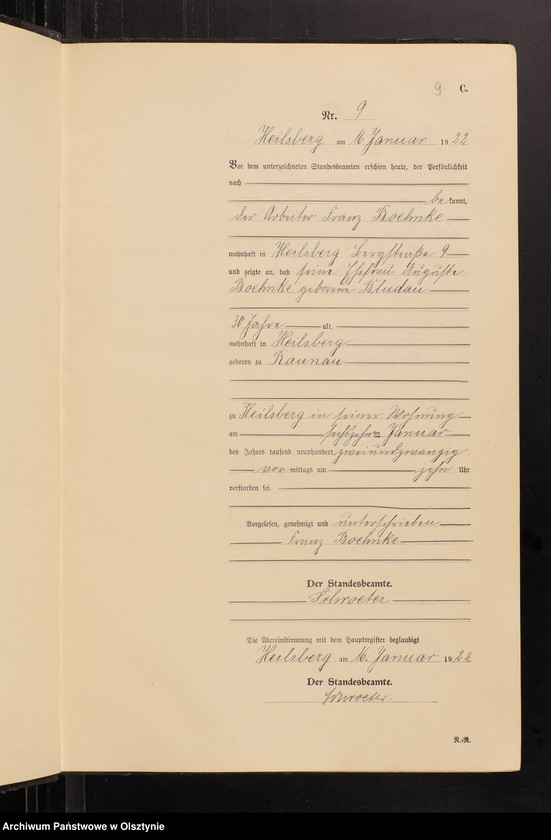 9 C.
Nr. 9
Heilsberg am 16 Januar 1922
Vor dem unterzeichneten Standesbeamten erschien heute, der Persönlichkeit
nach
bekannt,
der Arbeiter Franz Boehnke
wohnhaft in Heilsberg Bergstraße 9
und zeigte an, daß seine Ehefrau Auguste
Boehnke geborene Bludau
30 Jahre alt,
wohnhaft in Heilsberg
geboren zu Raunau
zu Heilsberg in seiner Wohnung
am sechszehnten Januar
des Jahres tausend neunhundert zweiundzwanzig
vormittags um zehn Uhr
verstorben sei.
Vorgelesen, genehmigt und unterschrieben
Franz Boehnke
Der Standesbeamte.
Schroeter
Die Übereinstimmung mit dem Hauptregister beglaubigt
Heilsberg am 16. Januar 1922
Der Standesbeamte.
Schroeter.
Archiwum Państwowe w Olsztynie